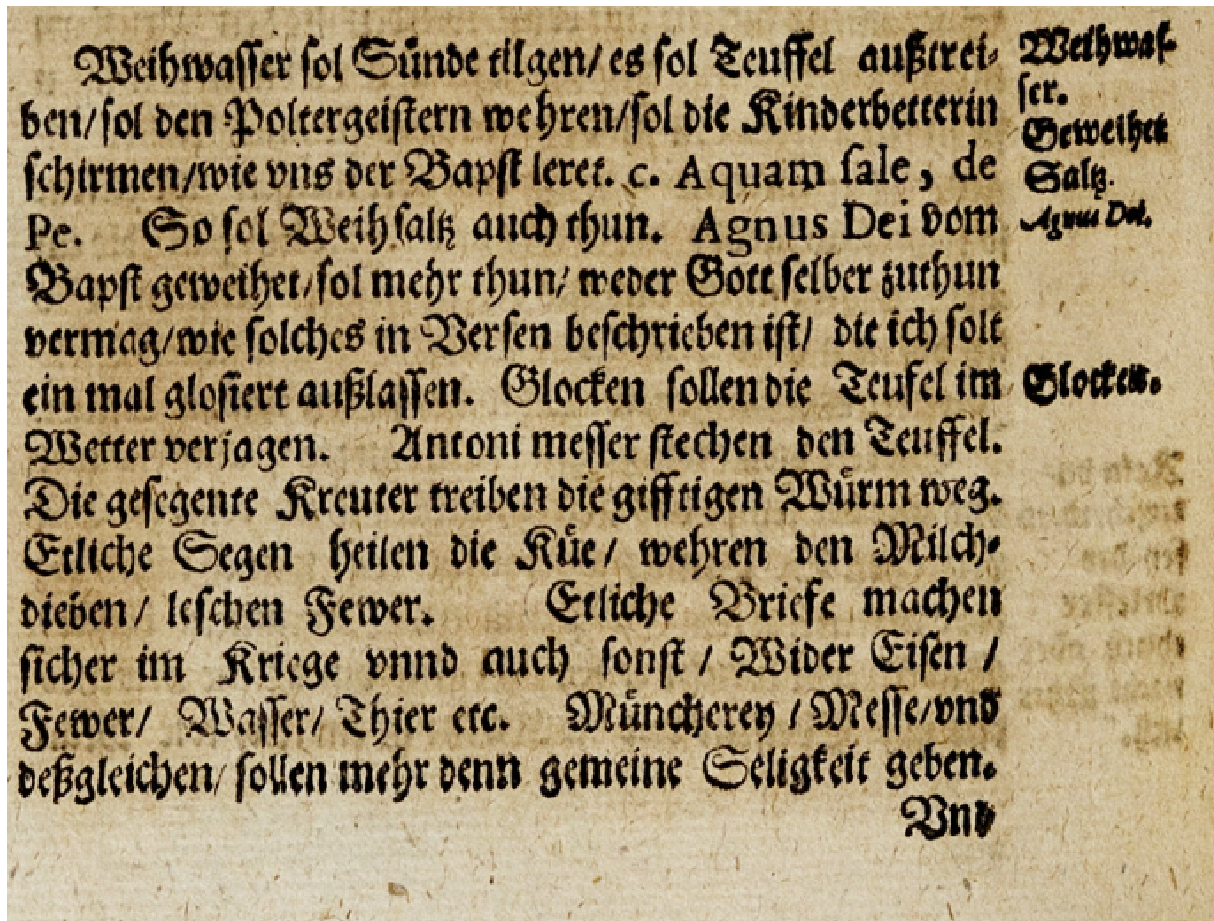 Weihwaſſer ſol Sünde tilgen/ es ſol Teuffel außtrei⸗
ben/ſol den Poltergeiſtern wehren/ſol die Kinderbetterin
ſchirmen/wie vns der Bapſt leret. c. Aquam ſale, de
Pe. So ſol Weihſaltz auch thun. Agnus Dei vom
Bapſt geweihet/ſol mehr thun/ weder Gott ſelber zuthun
vermag/wie ſolches in Verſen beſchrieben iſt/ die ich ſolt
ein mal gloſiert außlaſſen. Glocken ſollen die Teufel im
Wetter verjagen. Antoni meſſer ſtechen den Teuffel.
Die geſegente Kreuter treiben die gifftigen Würm weg.
Etliche Segen heilen die Küe/ wehren den Milch⸗
dieben/ leſchen Fewer. Etliche Briefe machen
ſicher im Kriege vnnd auch ſonſt / Wider Eiſen /
Fewer/ Waſſer/ Thier etc. Müncherey / Meſſe/vnd
deßgleichen/ ſollen mehr denn gemeine Seligkeit geben.
Vnd
Weihwaſ⸗
ſer.
Geweihet
Saltz.
Agnus Dei.
Glocken.